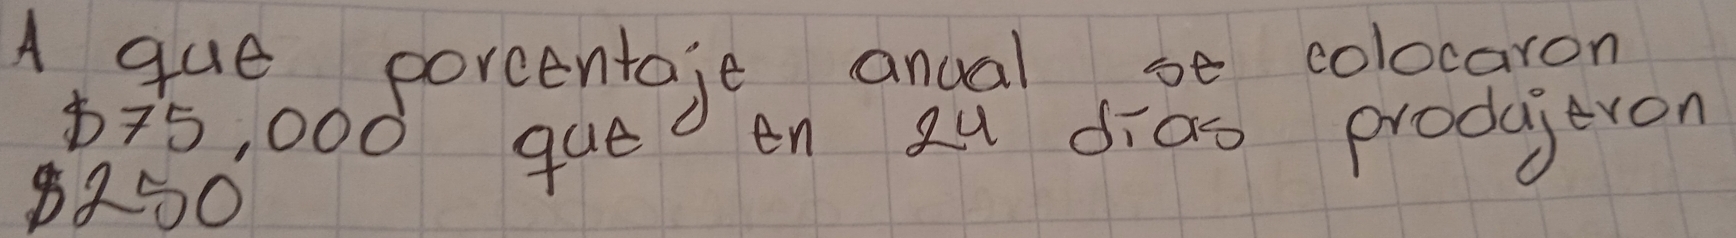 A que porcentaje anual se colocaron
$75,000 que en 24 dias produjeron
$250